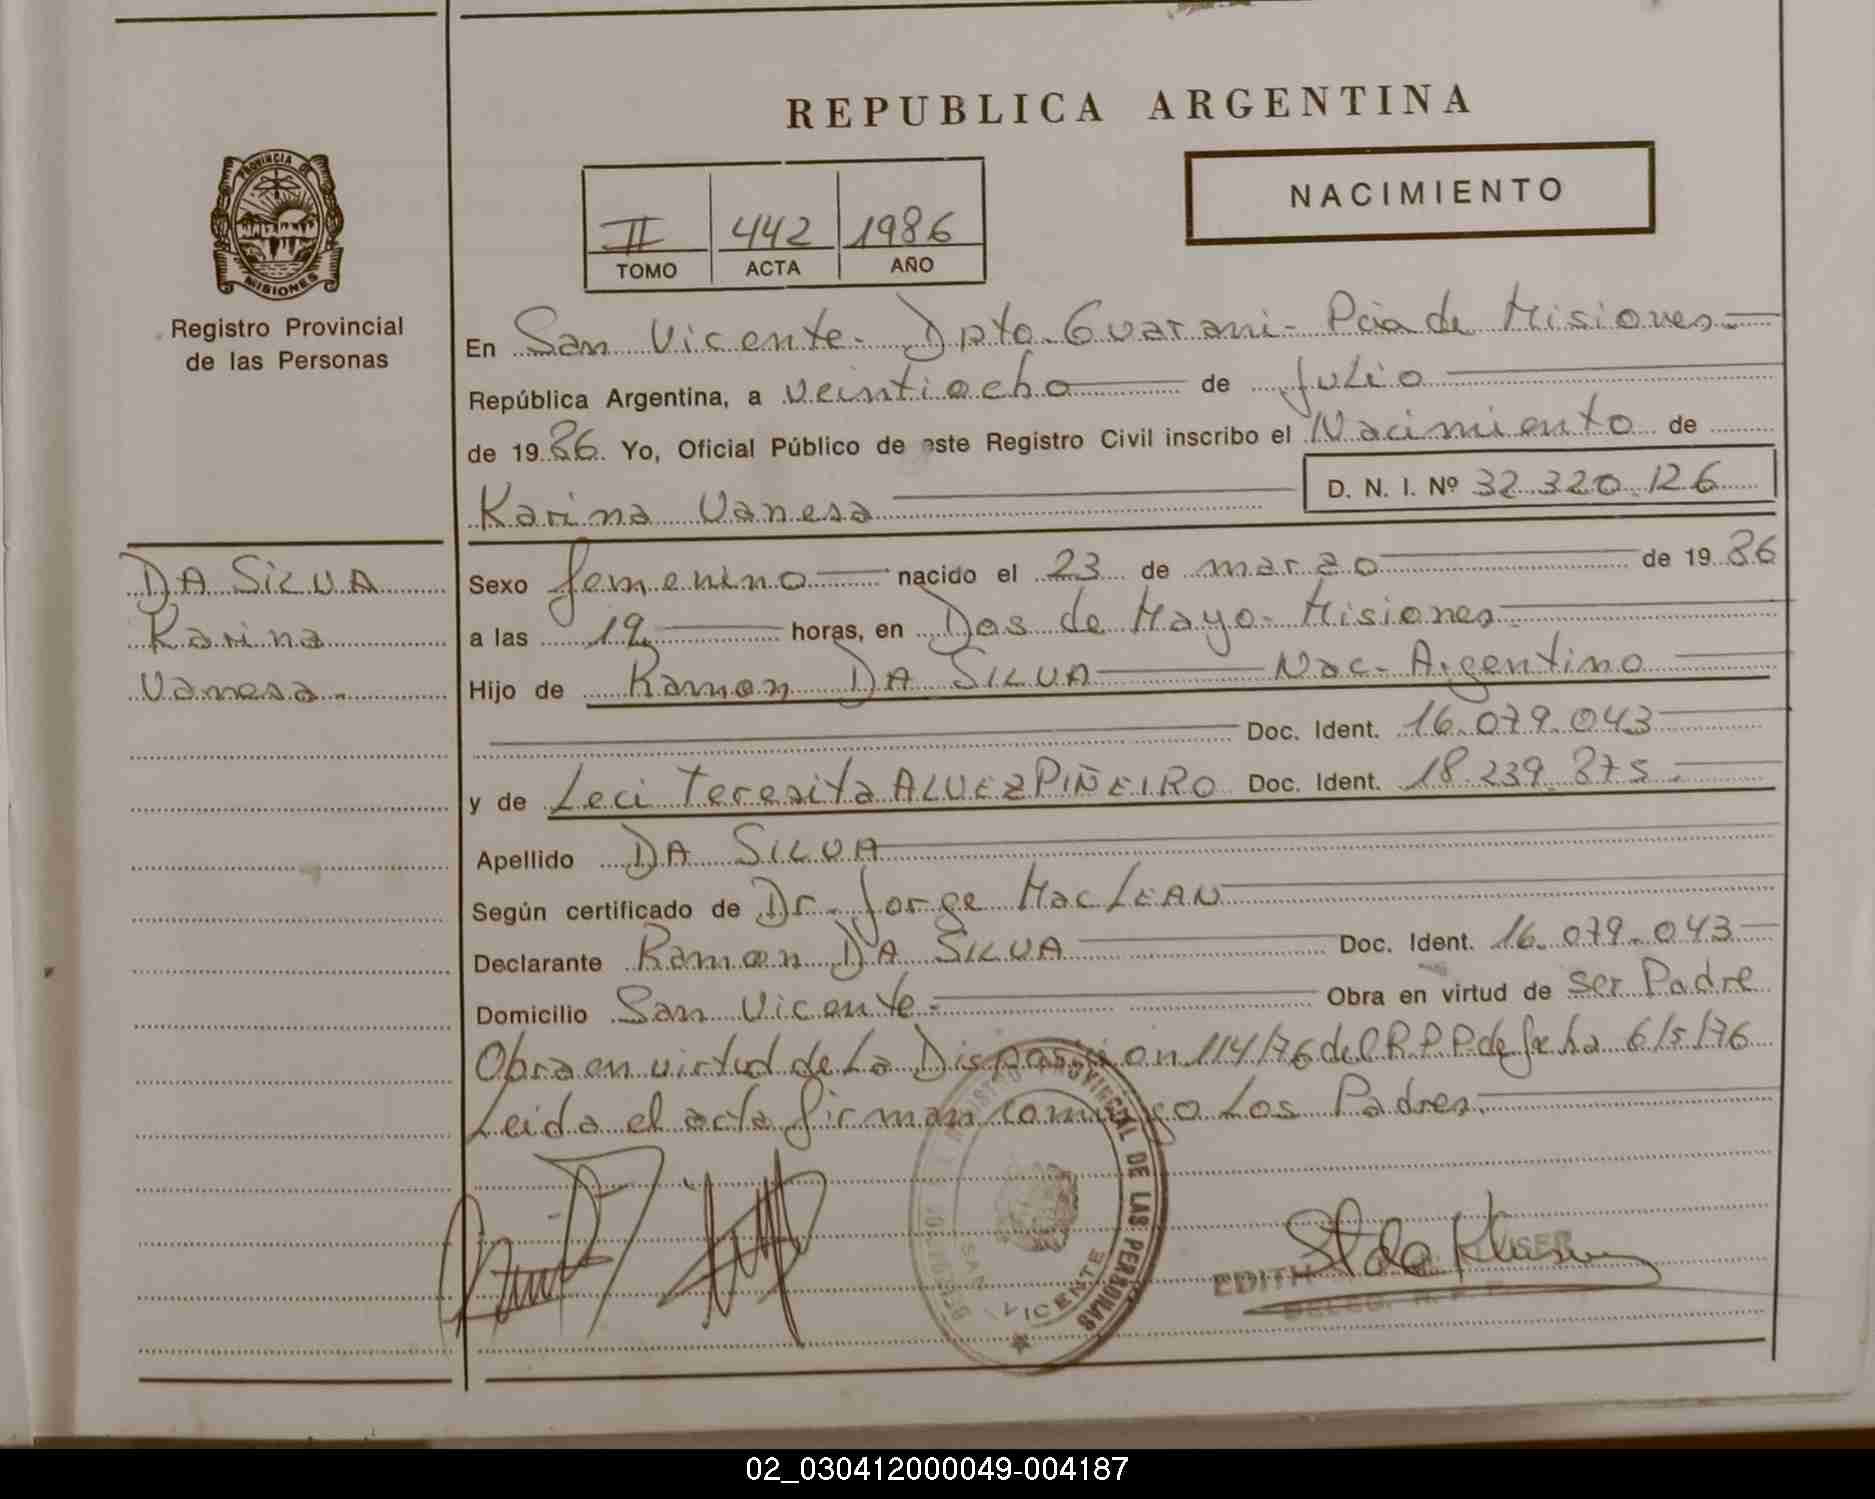 REPUBLICA ARGENTINA
PROVINCIA DE
MISIONES
Registro Provincial
de las Personas
II 442 1986
TOMO ACTA AÑO
NACIMIENTO
En San Vicente - Dpto. Guarani - Pcia de Misiones -
República Argentina, a veintiocho de Julio
de 1986. Yo, Oficial Público de este Registro Civil inscribo el Nacimiento de
Karina Vanesa D. N. I. Nº 32.320.126
DA SILVA
Karina
Vanesa.
Sexo femenino nacido el 23 de marzo de 1986
a las 19 horas, en Dos de Mayo - Misiones
Hijo de Ramon DA SILVA Nac - Argentino
Doc. Ident. 16.079.043
y de Leci Teresita ALVEZ PIÑEIRO Doc. Ident. 18.239.875
Apellido DA SILVA
Según certificado de Dr. Jorge MacLEAN
Declarante Ramon DA SILVA Doc. Ident. 16.079.043
Domicilio San Vicente - Obra en virtud de ser Padre
Obra en virtud de La Disposicion 114/76 del R.P.P. de fecha 6/5/76
Leida el acta firman conmigo Los Padres.
REGISTRO PROVINCIAL DE LAS PERSONAS
SAN VICENTE
EDITH
02_030412000049-004187